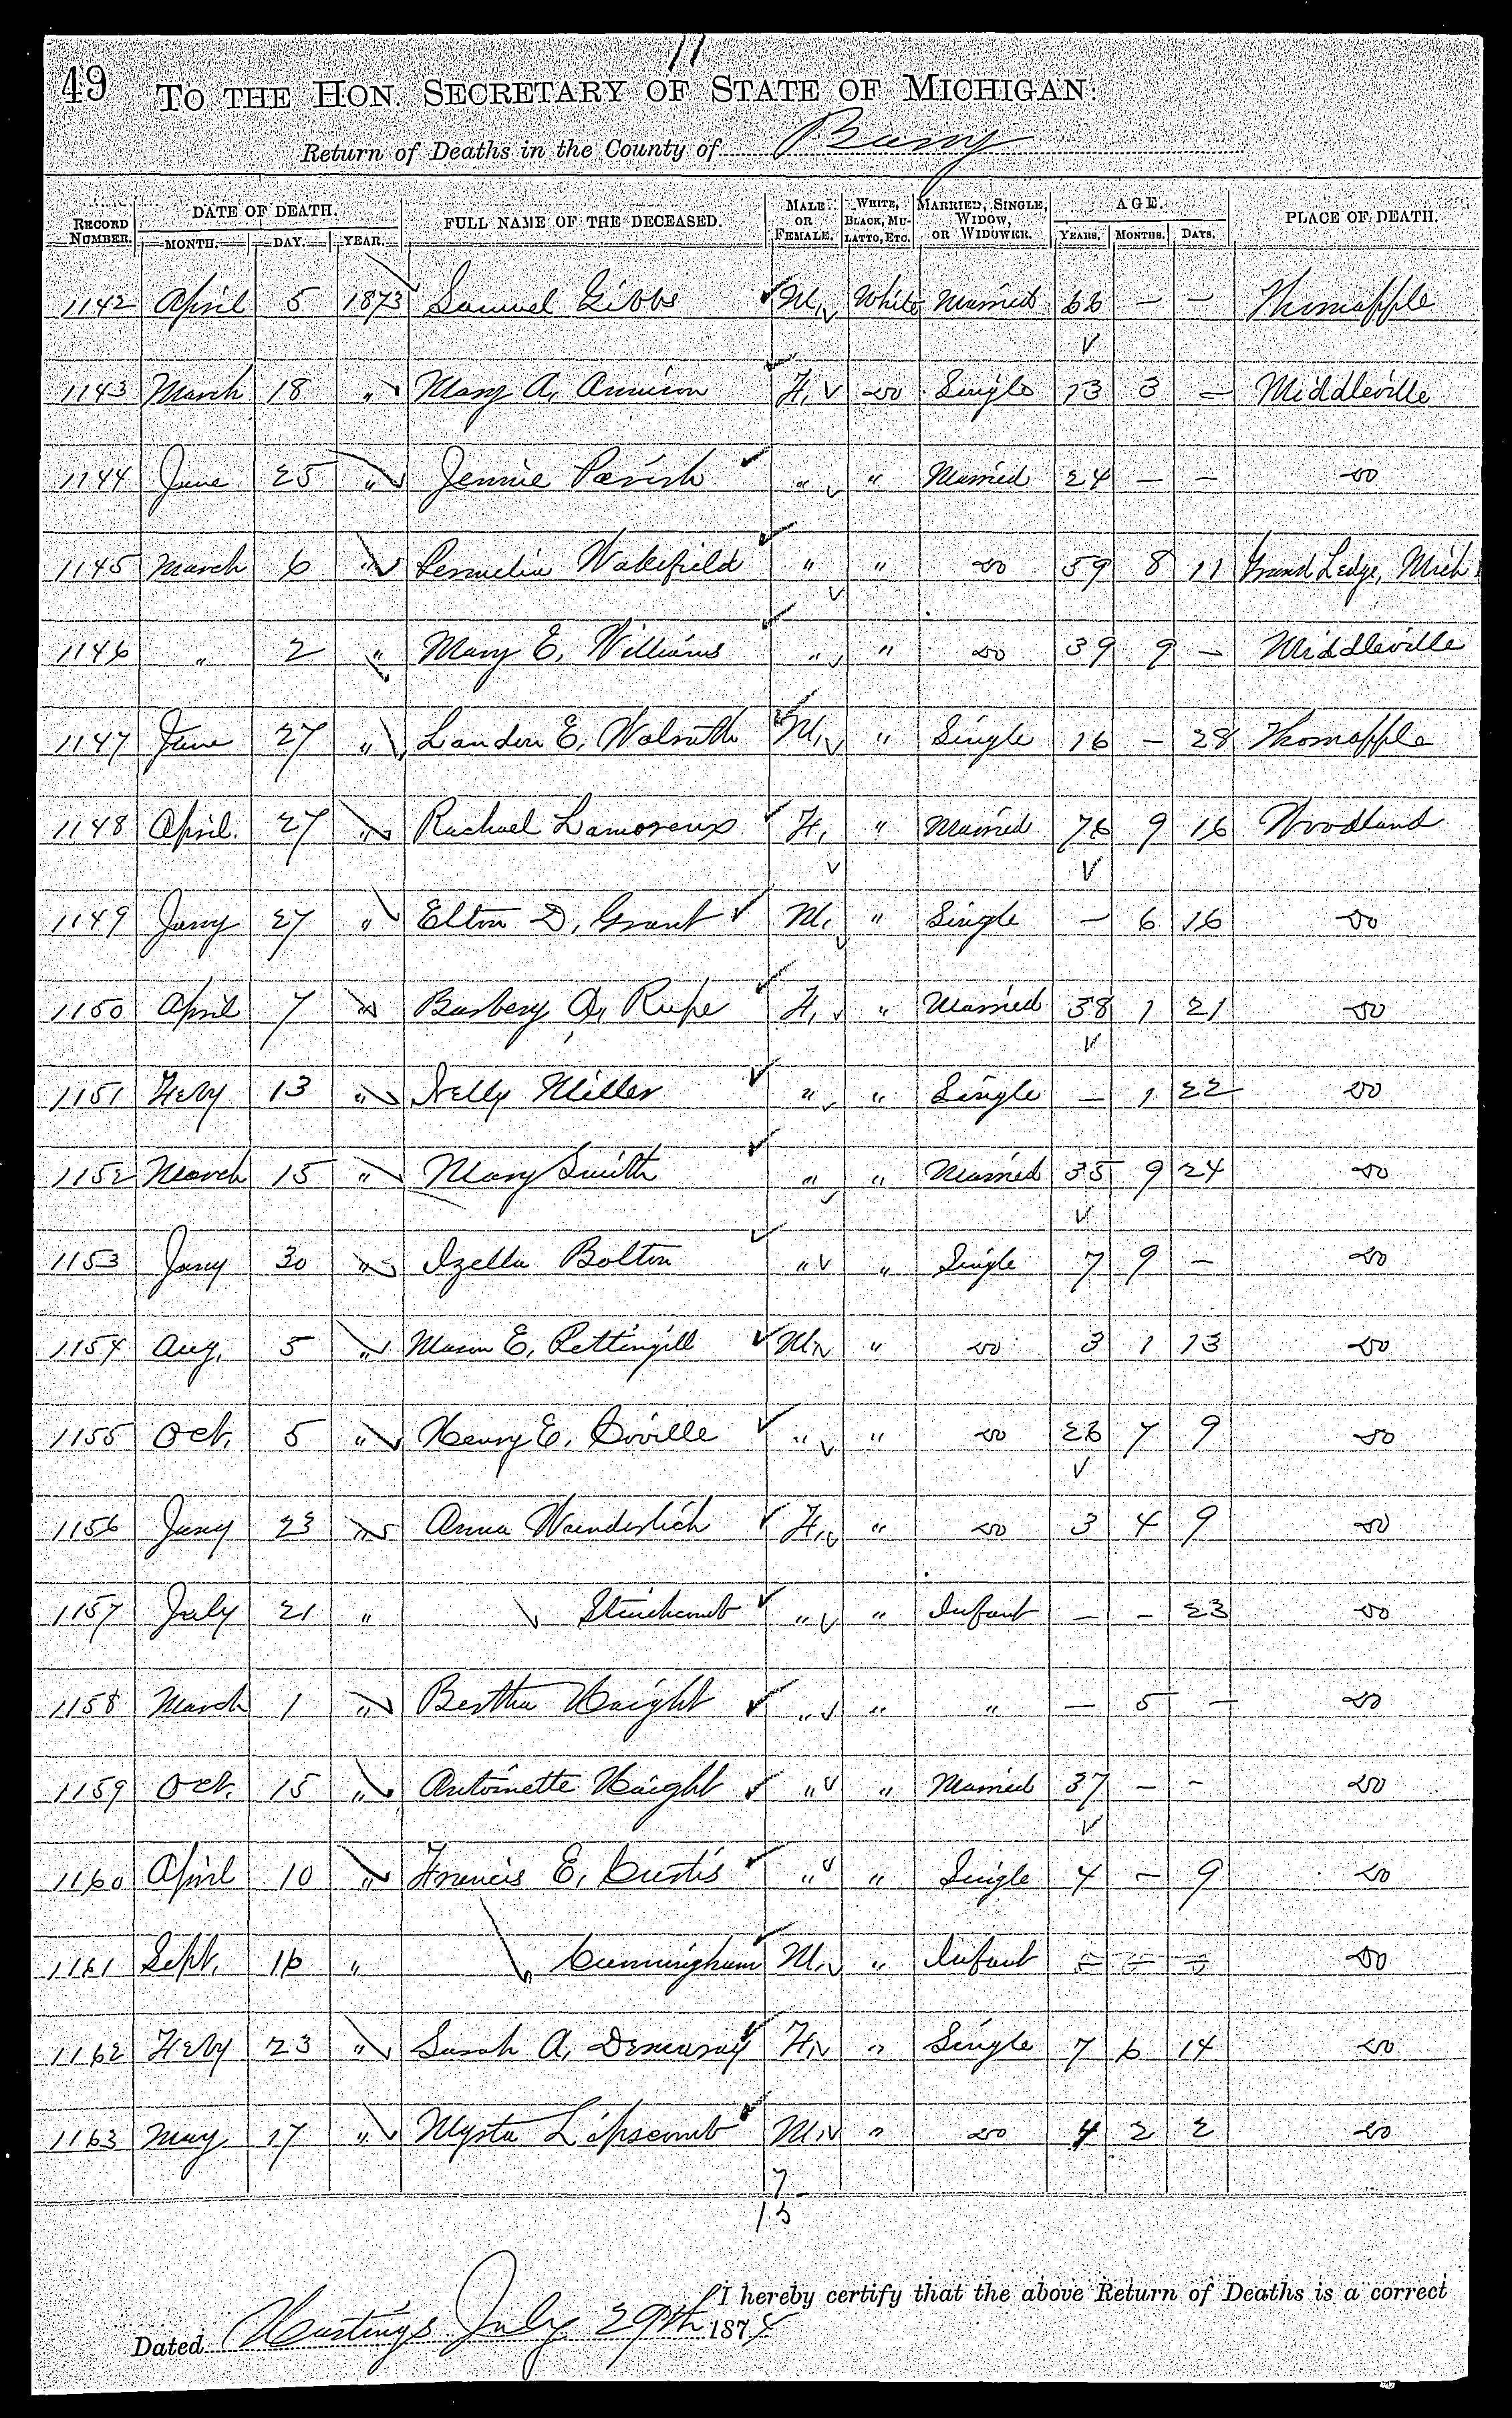 11
49 TO THE HON. SECRETARY OF STATE OF MICHIGAN:
Return of Deaths in the County of Barry
RECORD NUMBER. DATE OF DEATH. MONTH. DAY. YEAR. FULL NAME OF THE DECEASED. MALE OR FEMALE. WHITE, BLACK, MULATTO, ETC. MARRIED, SINGLE, WIDOW, OR WIDOWER. AGE. YEARS. MONTHS. DAYS. PLACE OF DEATH.
1142 April 5 1873 Samuel Gibbs M. White Married 66 — — Thornapple
1143 March 18 " Mary A. F. do Single 13 3 — Middleville
1144 June 25 " Jennie Parish " " Married 24 — — do
1145 March 6 " Permelia Wakefield " " do 59 8 11 Grand Ledge, Mich
1146 " 2 " Mary E. Williams " " do 39 9 — Middleville
1147 June 27 " Landon E. Walrath M. " Single 16 — 28 Thornapple
1148 April 27 " Rachael Lamoreux F. " Married 76 9 16 Woodland
1149 Jany 27 " Elton D. Grant M. " Single — 6 16 do
1150 April 7 " Barbery A. Rupe F. " Married 38 1 21 do
1151 Feby 13 " Nelly Miller " " Single — 1 22 do
1152 March 15 " Mary Smith " " Married 35 9 24 do
1153 Jany 30 " Izella Bolton " " Single 7 9 — do
1154 Aug. 5 " Mason E. Pettingill M. " do 3 1 13 do
1155 Oct. 5 " Henry E. Coville " " do 26 7 9 do
1156 Jany 23 " Anna Wunderlich F. " do 3 4 9 do
1157 July 21 " Stinchcomb " " Infant — — 23 do
1158 March 1 " Bertha Haight " " " — 5 — do
1159 Oct. 15 " Antoinette Haight " " Married 37 — — do
1160 April 10 " Francis E. Curtis " " Single 4 — 9 do
1161 Sept. 16 " Cunningham M. " Infant — — — do
1162 Feby 23 " Sarah A. Demaray F. " Single 7 6 14 do
1163 May 17 " Mysta Lipscomb M. " do 4 2 2 do
7
15
I hereby certify that the above Return of Deaths is a correct
Dated Hastings July 29th 1874